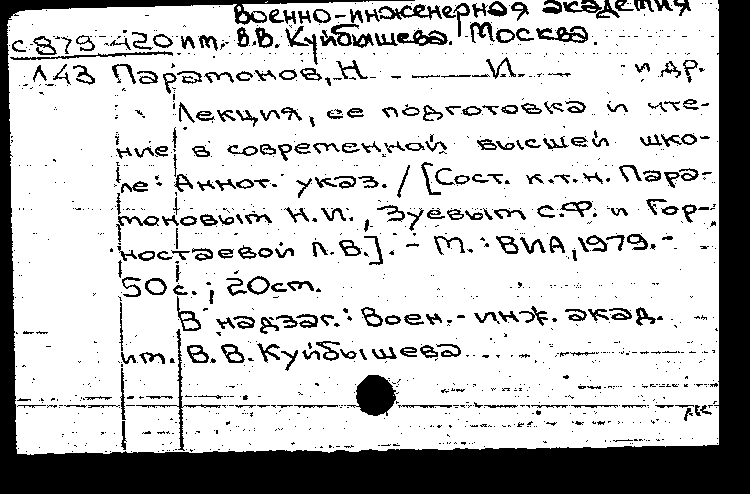 Военно-инженерная академия
С 879-420 им. В.В. Куйбышева. Москва.
Л43 Парамонов, Н. И. и др.
Лекция, ее подготовка и чте-
ние в современной высшей шко-
ле: Аннот. указ. / [Сост. к.т.н. Пара-
моновым Н.И., Зуевым С.Ф. и Гор-
ностаевой Л.В.]. - М.: ВИА, 1979. -
50с.; 20см.
В надзаг.: Воен.-инж. акад.
им. В.В. Куйбышева